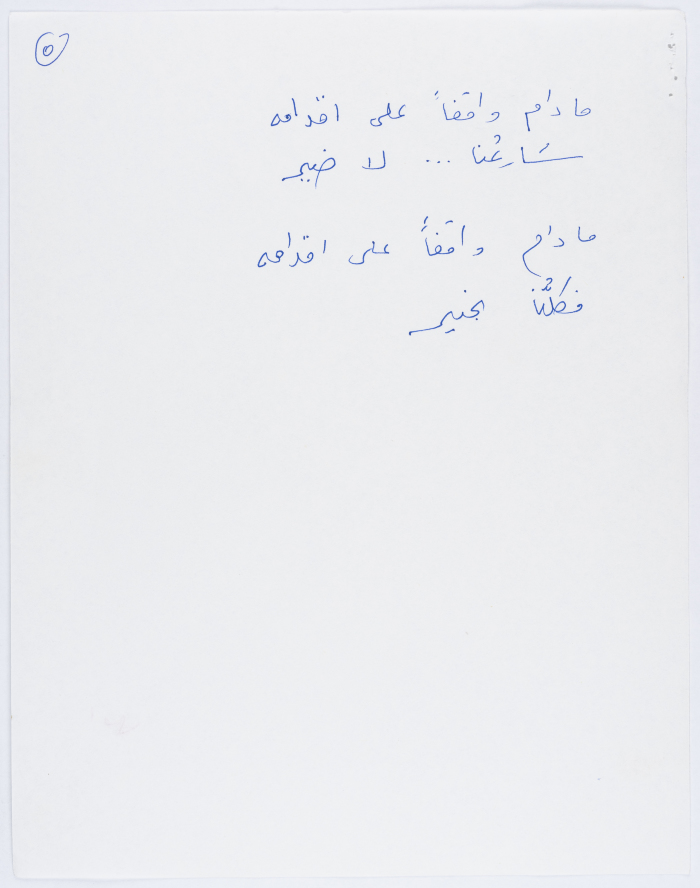 ٥
ما دام واقفاً على اقدامه
شارعُنا ... لا ضير
ما دام واقفاً على اقدامه
فكلُّنا بخير